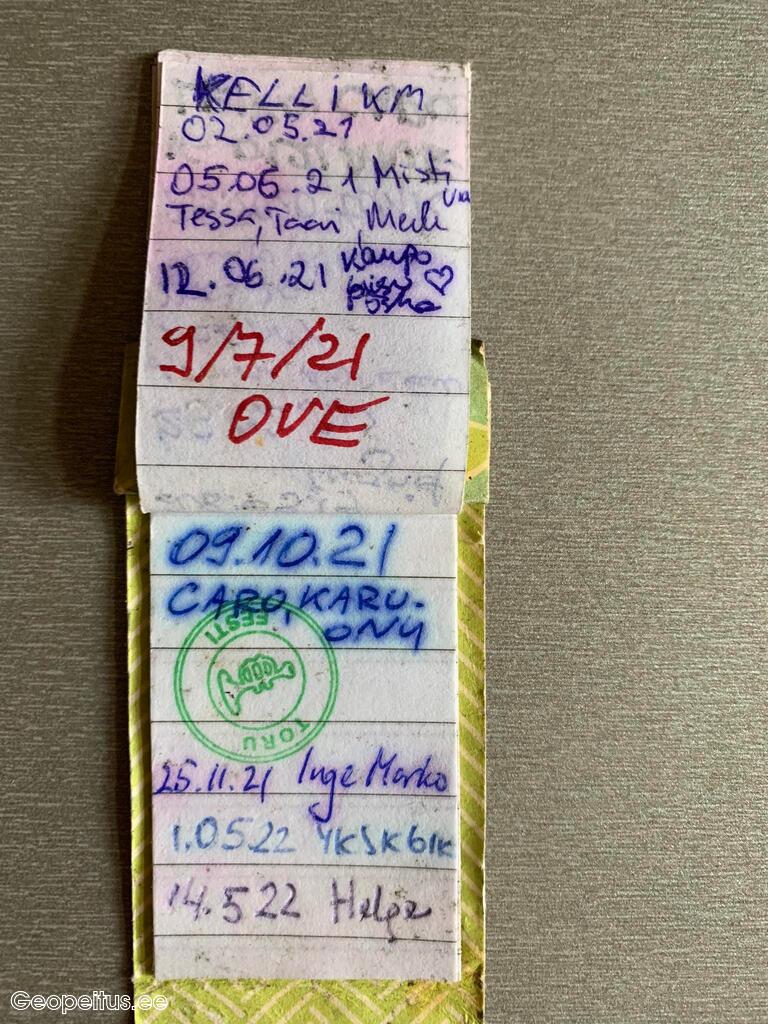 KELLIKM
02.05.21
05.06.21 Misti
Tessa, Taavi
12.06.21 Kaupo
9/7/21
OVE
09.10.21
CARO, KARU-
ONU
EESTI
TORU
25.11.21 Inge Marko
1.05.22
14.5 22 Helge
Geopeitus.ee